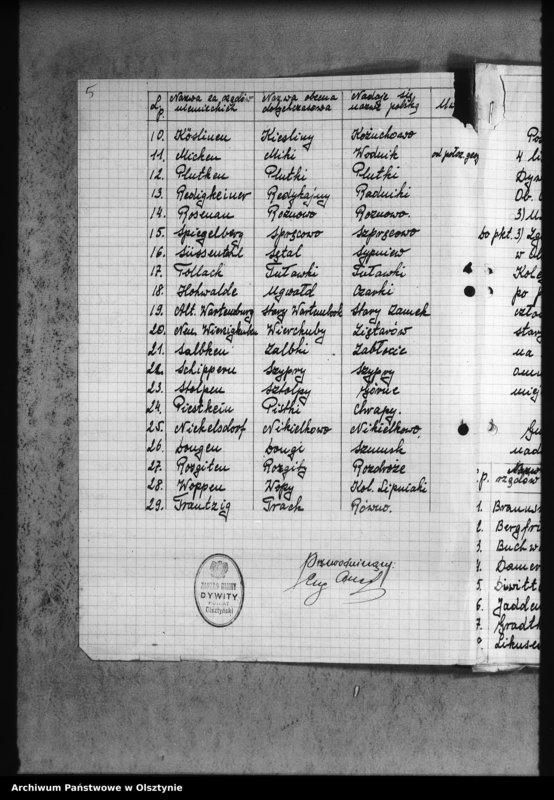 5
L.p. Nazwa za rządów niemieckich Nazwa obecna dotychczasowa Nadaje się nazwę polską
10. Köslinen Kiesliny Kożuchowo
11. Micken Miki Wodnik od połoz. geogr
12. Plutken Plutki Plutki
13. Redigkeiner Redykajny Radniki
14. Rosenau Rożnowo Rożnowo.
15. Spiegelberg Spręcowo Szpręcowo
16. Süssenthal Sętal Sypniew
17. Tollack Tuławki Tuławki
18. Hohwalde Ugwałd Ożarki
19. Alt. Wartenburg Stary Wartembork Stary Zamek
20. Neu. Wierzighuken Wierchuby Ziętarów
21. Salbken Zalbki Zabłocie
22. Schippern Szypry Szypry
23. Stolpen Sztolpy Górne
24. Piestkein Pistki Chrapy.
25. Nickelsdorf Nikielkowo Nikielkowo.
26. Dougen Dougi Szumsk
27. Rozgiten Rozgity Rozdroże
28. Woppen Wopy Kol. Lipniaki
29. Trautzig Track Równo.
Przewodniczący:
ZARZĄD GMINY
DYWITY
POWIAT
Olsztyński
4 li
Ob.
3) Un
Do pkt. 3)
w
po
star
na
miej
nad
Nazw
L.p. rządów
1. Brauns
2. Bergfri
3. Buchw
4. Damer
5. Diwitt
6. Jadden
7. Gradtk
8. Likusen
Archiwum Państwowe w Olsztynie